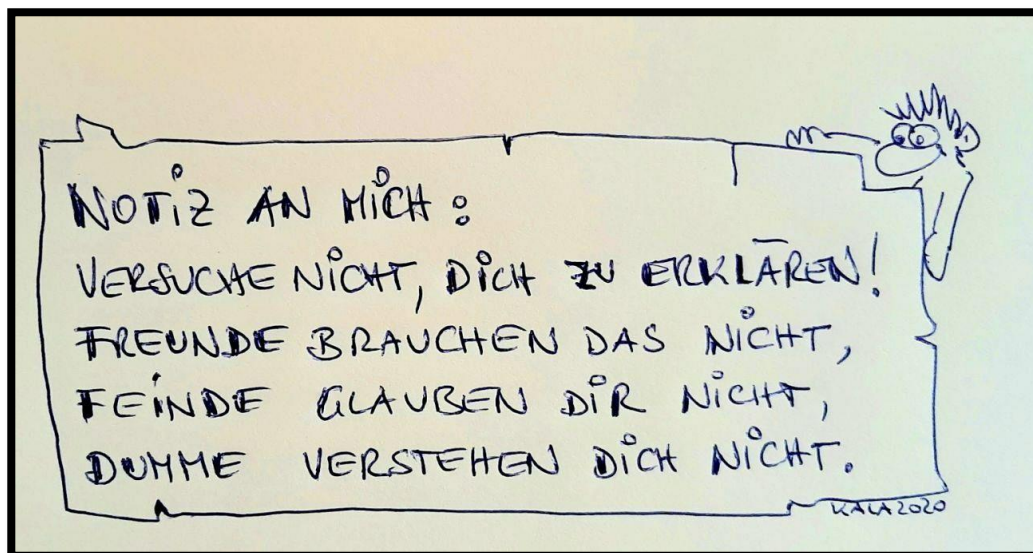 NOTIZ AN MICH:
VERSUCHE NICHT, DICH ZU ERKLÄREN!
FREUNDE BRAUCHEN DAS NICHT,
FEINDE GLAUBEN DIR NICHT,
DUMME VERSTEHEN DICH NICHT.
KALA2020